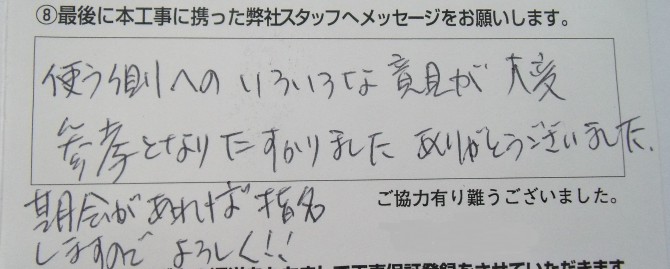 ⑧最後に本工事に携った弊社スタッフへメッセージをお願いします。
使う側への いろいろな 意見が 大変
参考となり たすかりました ありがとうございました.
ご協力有り難うございました。
期会があれば 指名
しますので よろしく!!
工事保証登録をさせていただきます